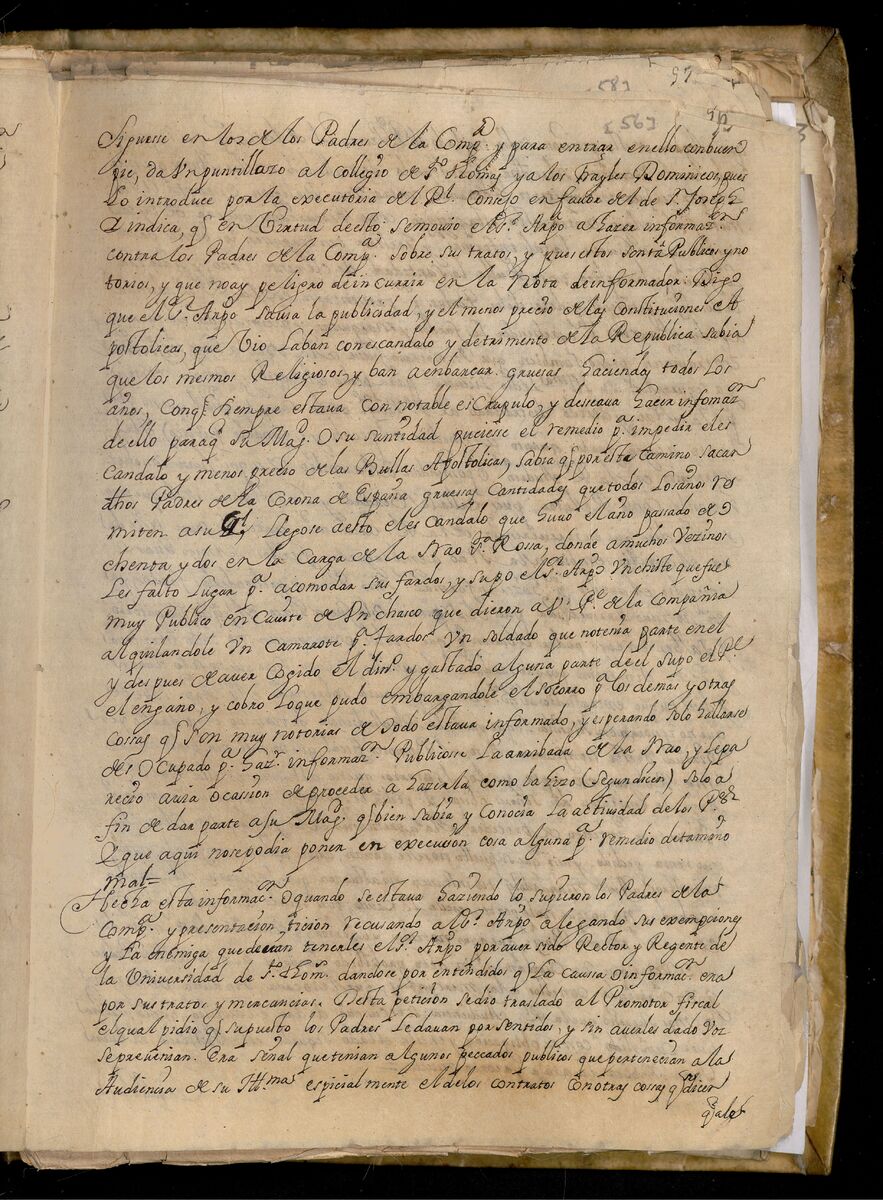 57
[58]
[56]
Siguesse en los de los Padres de la Compª. y para entrar en ello con buen
pie, da Vn puntillazo al collegio de Sto. Thomas y a los frayles Dominicos, pues
Lo introduce por la executoria del Rl. Consejo en favor del de S. Joseph
E indica, q̃ en Virtud de esto, se movio el Sr. Arpo a hazer informazon.
contra los Padres de la Compª. sobre sus tratos, y pues estos son tã Publicos y no
torios, y que no ay peligro de incurrir en la Nota de informador. Digo
que el Sr. Arpo savia la publicidad, y el menos precio de las Constituciones A
postolicas, que Vio con escandalo y detrimento de la Republica sabia
que los mesmos Religiosos, y ban a enbarcar gruesas haciendas todos Los
años, Conq̃ siempre estava con notable escrupulo, y deseava hacer infomazon
de ello paraq̃ su Mag. O su santidad pusiesse el remedio pª. impedir el es
candalo y menos precio de las Bullas Apostolicas, sabia q̃ por este camino sacan
dhos Padres de la Corona de España gruesas Cantidades que todos Los años re
miten a su Gl. Llegose a esto el escandalo que huvo el año passado de o
chenta y dos en la Carga de la Nao Sta. Rossa, donde a muchos Vezinos
Les falto Lugar pª. acomodar sus fardos, y supo el Sr. Arpo Vn chiste que fue
muy Publico en Cavite de Vn chasco que dieron a Vn Pe. de la Compañia
alquilandole Vn Camarote pª. fardos Vn soldado que no tenia parte en el
y despues de aver Cogido el dinº. y gastado alguna parte de el supo el Pe.
el engaño, y cobro Loque pudo embargandole el socorro pª. los demas y otras
cossas q̃ son muy notorias de todo estava informado, y esperando solo hallarse
des Ocupado pª. hazr. informazon. Publicosse La arribada de la Nao, y Lepa
recio avia ocassion de proceder a hazerla como la hizo (segun dicen) solo a
fin de dar parte a su Mag. q̃ bien sabia y Conocia La actividad de los Pes
E que aqui nose podia poner en execucion cosa alguna pª. remedio de tamaño
mal=
Hecha esta informacon. O quando se estava haziendo lo supieron los Padres de la
Compª. y presentaron peticion recusando al Sr. Arpo alegando sus exempciones
y La enemiga que decian tenerles el Sr. Arpo por aver sido Rector y Regente de
la Universidad de Sto. Thom. dandose por entendidos q̃ La caussa O informacon. era
por sus tratos y mercancias. Desta peticion se dio traslado al Promotor fiscal
el qual pidio q̃ supuesto los Padres Le davan por sentidos, y sin averles dado Voz
se prevenian. Era señal que tenian algunos peccados publicos que pertenecian a la
Audiencia de su Illma especialmente el de los contratos En otras cossas q̃ dicen